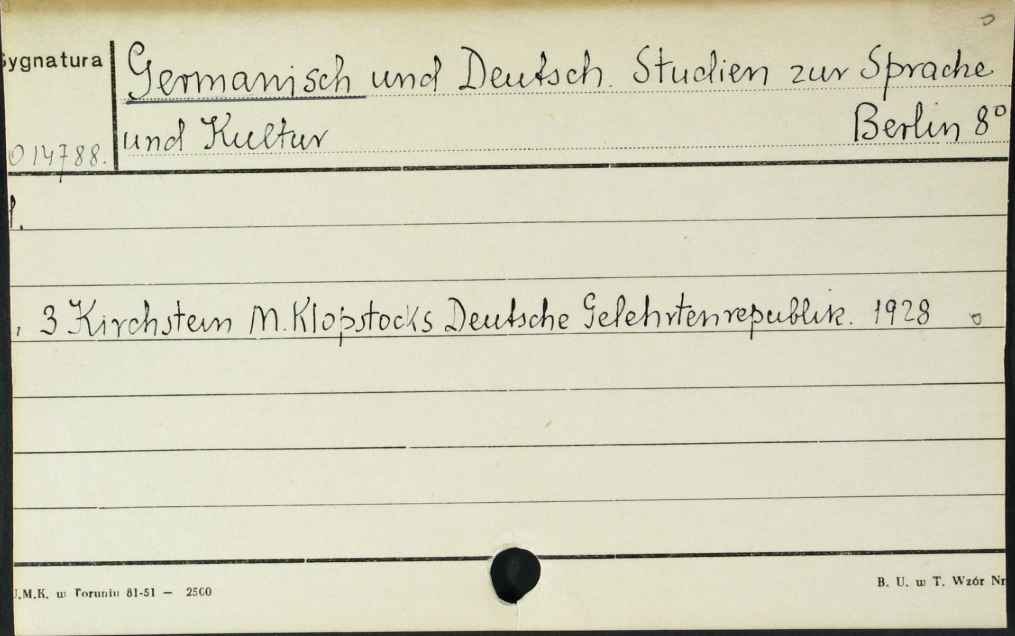 Sygnatura
Germanisch und Deutsch. Studien zur Sprache
und Kultur Berlin 8°
014788.
, 3 Kirchstein M. Klopstocks Deutsche Gelehrtenrepublik. 1928
U.M.K. w Toruniu 81-51 — 2500
B. U. w T. Wzór Nr